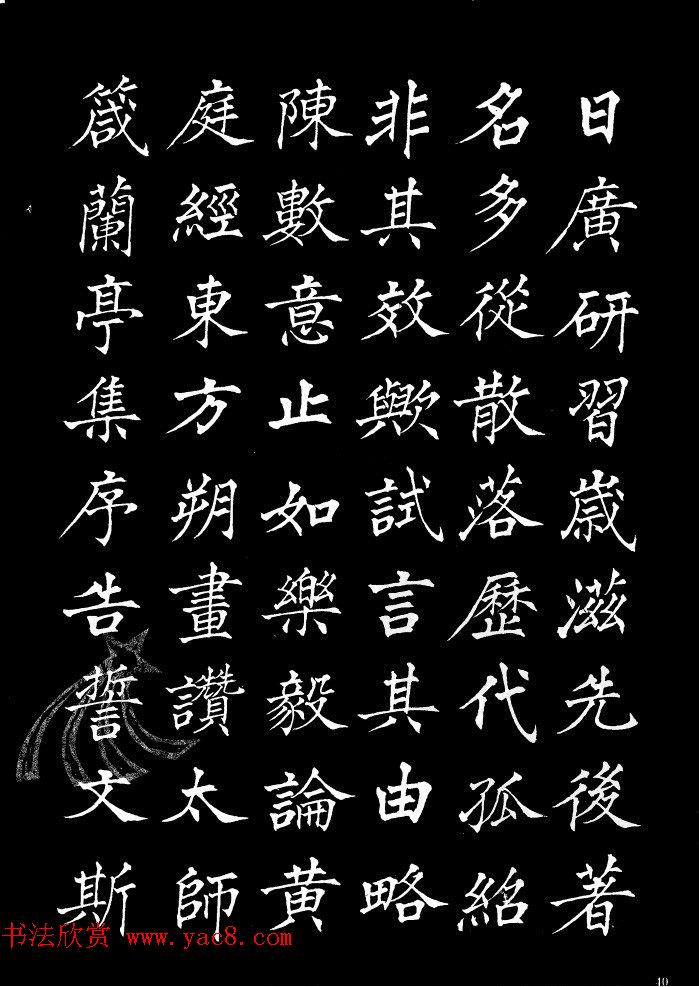 日廣研習歲滋先後著
名多從散落歷代孤紹
非其效歟試言其由略
陳數意止如樂毅論黃
庭經東方朔畫讚太師
箴蘭亭集序告誓文斯
书法欣赏 www.yac8.com
40